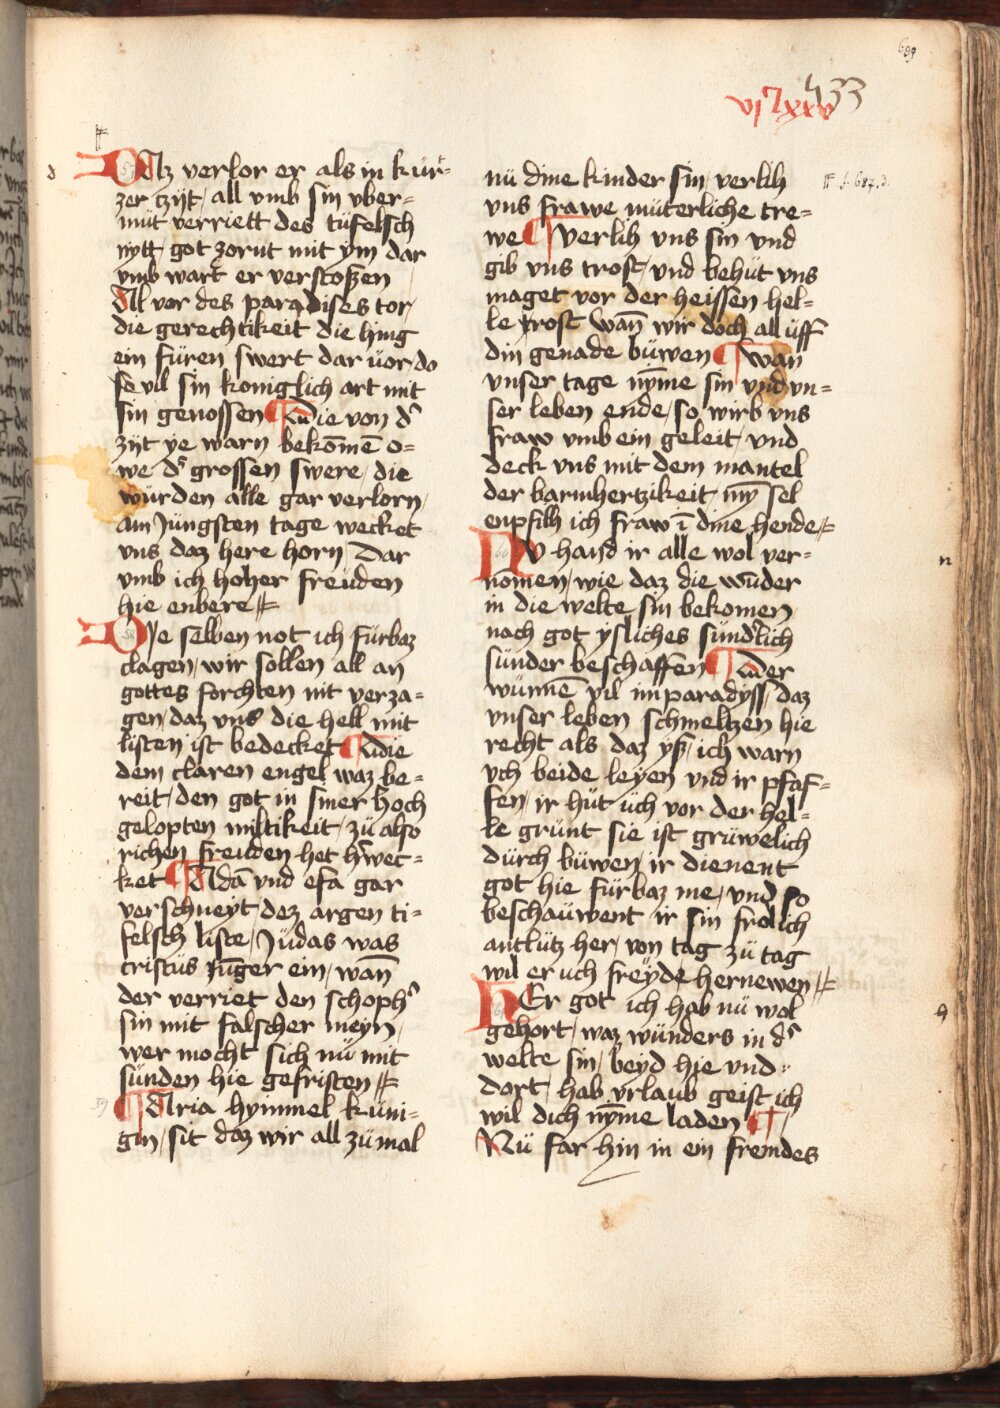 689
433
vi⁊xxv
57
Daz verlor er als in kür-
zer zyt / all vmb sin vber=
müt verriett des tüfelsch
nytt / got zornt mit ym dar
vmb wart er verstoßen
All vor des paradises tor /
die gerechtikeit die hing
ein füren swert dar üor / do
se vil sin koniglich art mit
sin genossen ¶ Die von dˀ
zijt ye warn bekōmē o=
we dˀ grossen swere / die
würden alle gar verlorn /
am Jüngsten tage wecket
vns daz here horn / Dar
vmb ich hoher freüden
hie enbere //
58
Die selben not ich fürbaz
clagen / wir sollen all an
gottes forchten nit verza=
gen / daz vns die hell mit
listen ist bedecket ¶ die
dem claren engel waz be=
reit / den got in siner hoch
gelopten miltikeit / zü also
richen freuden het hˀwec=
ket ¶ Adā vnd efa gar
verschneyt dez argen ti=
felsch liste / Jüdas was
cristüs jūger ein / wan̄
der verriet den schophˀ
sin mit falscher meyn /
wer mocht sich nü mit
sünden hie gefristen //
59
¶ Maria hymmel küni=
gin / sit daz wir all zümal
nü dine kinder sin / verlih
vns frawe müterliche tre=
we ¶ Verlih vns sin vnd
gib vns trost / vnd behüt vns
maget vor der heissen hel=
le rost / Wan̄ wir doch all üff
din genade büwen ¶ wan
vnser tage nȳme sin vnd vn=
ser leben ende / so wirb vns
fraw vmb ein geleit / vnd
deck vns mit dem mantel
der barmhertzikeit / my̅ sel
enpfilh ich fraw ī dine hende //
60
NV hand ir alle wol ver=
nomen / wie daz die wūder
in die welte sin bekomen
noch got ysliches sündˀlich
sünder beschaffen ¶ der
würmē vil im paradyss / daz
vnser leben schmeltzen hie
recht als daz yß / ich warn
vch beide leyen vnd ir pfaf=
fen / ir hüt üch vor der hel=
le grünt sie ist grüwelich
dürch büwen ir dienent
got hie fürbaz me / vnd so
beschaüwent ir sin frolich
antlütz her / von tag zü tag
wil er uch freyde hernewen //
61
HEr got ich hab nü wol
gehort / waz wünders in dˀ
welte sin / beyd hie vnd
dort / hab vrlaub geist ich
wil dich nȳme laden ¶
Nü far hin in ein fremdes